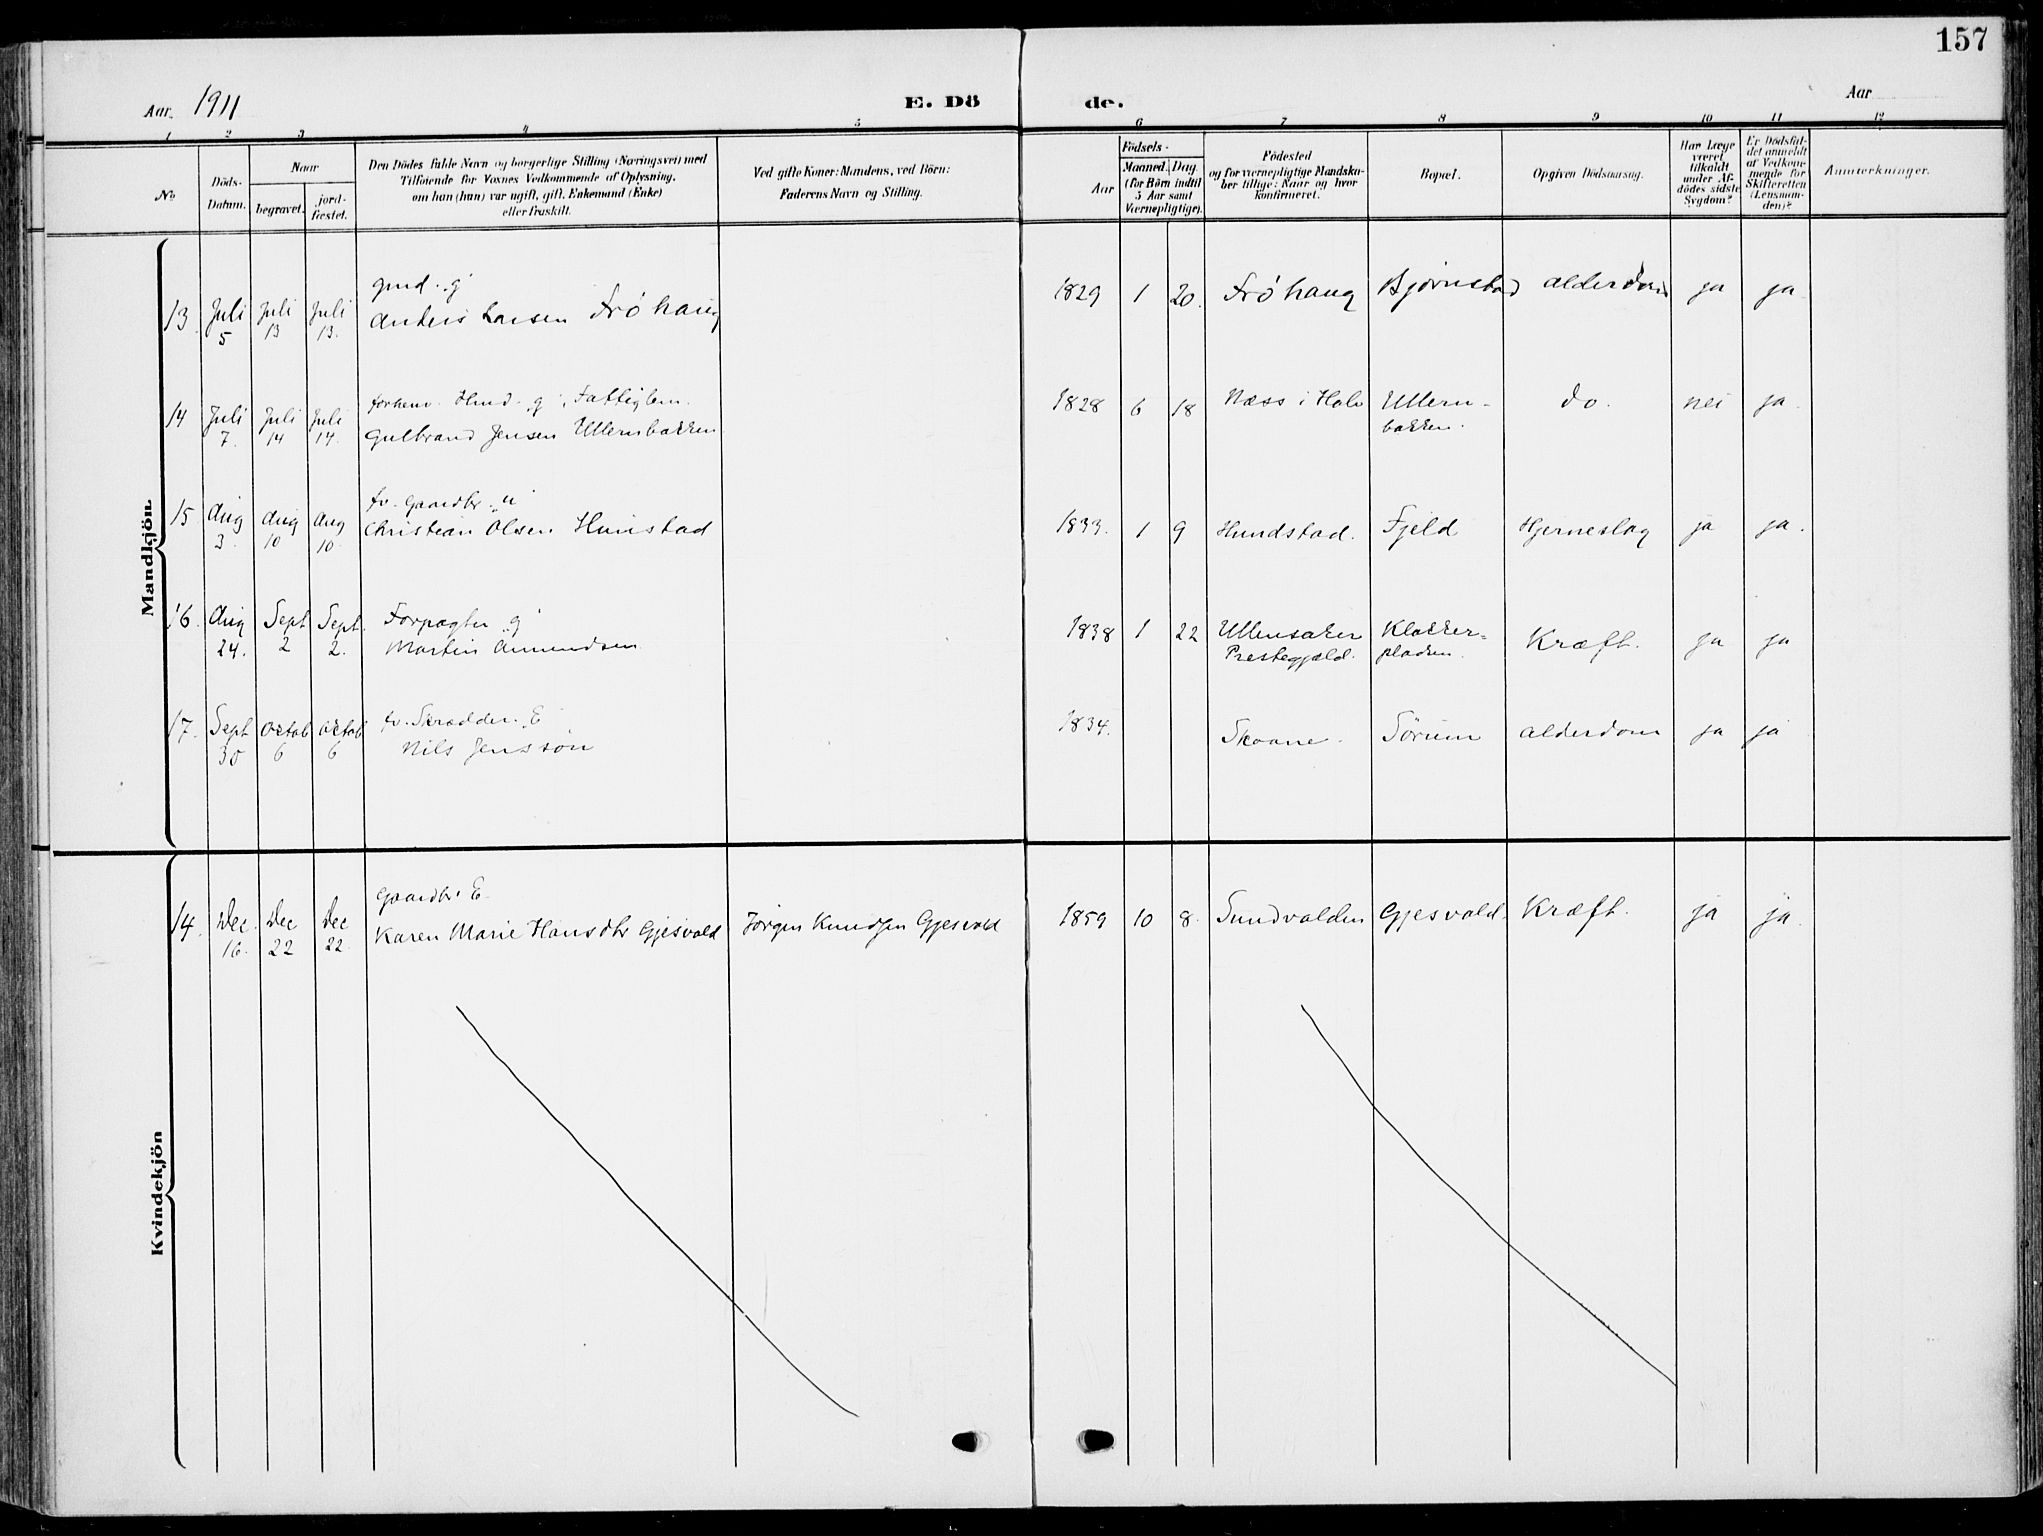 157
Aar. 1911
E. Dö
de.
Aar
1 2 3 4 5 6 7 8 9 10 11 12
No.
Döds-
Datum.
Naar
begravet.
jord-
fæstet.
Den Dödes fulde Navn og borgerlige Stilling (Næringsvei) med
Tilföiende for Voxnes Vedkommende af Oplysning,
om han (hun) var ugift, gift, Enkemand (Enke)
eller fraskilt.
Ved gifte Koner: Mandens, ved Börn:
Faderens Navn og Stilling.
Födsels-
Aar
Maaned. Dag.
(for Börn indtil
5 Aar samt
Værnepligtige).
Födested
og for værnepligtige Mandska-
ber tillige: Naar og hvor
konfirmeret.
Bopæl.
Opgiven Dödsaarsag.
Har Læge
været
tilkaldt
under Af-
dödes sidste
Sygdom?
Er Dödsfal-
det anmeldt
af Vedkom-
mende for
Skifteretten
(Lensman-
den)?
Anmerkninger.
Mandkjön.
13. Juli 5 Juli 13 Juli 13. gmd. g Anders Larsen Frøhaug 1829 1 20. Frøhaug Bjørnstad alderdom ja ja
14 Juli 7. Juli 14 Juli 14. forhenv. Hmd. g, Fattiglem. Gulbrand Jensen Ullernbakken 1828 6 18 Næss i Hole Ullern-
bakken. do. nei ja.
15. Aug 3. Aug 10 Aug 10. fv. Gaardbr. "u" Christian Olsen Hunstad 1833. 1 9 Hundstad. Fjeld Hjerneslag ja ja.
16. Aug 24. Sept 2 Sept. 2. Forpagter g Martin Amundsen 1838 1 22 Ullensaker
Prestegjæld. Klokker-
pladsen. Kræft. ja ja
17. Sept 30 Octob 6 Octob 6 fv. Skrædder. E Nils Jenssøn 1834. Skaane. Sørum alderdom ja ja
Kvindekjön
14. Dec. 16. Dec 22 Dec 22. Gaardbr. E. Karen Marie Hansdtr Gjesvold Jørgen Knudsen Gjesvold 1859 10 8. Sundvolden Gjesvold. Kræft. ja ja.